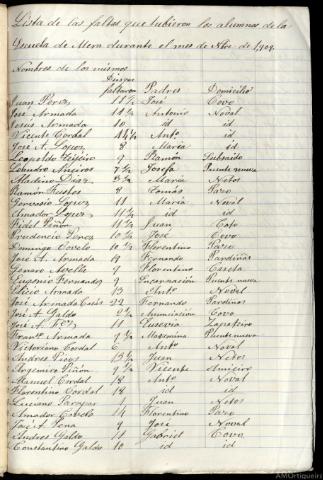 Lista de las faltas que tubieron los alumnos de la
Escuela de Mera durante el mes de Nbre. de 1,909.
Nombres de los mismos
Dias que faltaron Padres Domicilio
Juan Perez 11½ José Covo
José Armada 11½ Antonio Noval
Jesús Armada 10 id id
Vicente Cordal 44½ Antº Noval
José A. Lopez 8 Maria id
Leopoldo 9 Ramón
Leandro Aneiros 7½ Josefa Puente nuevo
Maximo Diaz Maria Netos
Ramón Fustes 8 Tomás Paro
Gervasio Lopez 11 Maria Noval
Amador Lopez 11½ id id
Fidel Piñon 11½ Juan
Prudencio Perez 10½ José Covo
Domingo Covelo 10½ Florentino Paro
José A. Armada 19 Fernando Pardiñas
Genaro Avelle 9 Florentino
Eugenio Fernandez 9 Encarnación Puente nuevo
Elicio Armada 13 Antº Noval
José Armada 22 Fernando Pardiñas
José A. Galdo 2½ Anunciacion Covo
José A. Fez 11 Eusevia
Armada 9½ Puente nuevo
Victorino Cordal 2 Antº Noval
Andres Pérez 13½ Juan Netos
Argemiro Piñon 9½ Vicente
Manuel Cordal 18 Antº Noval
Florentino Cordal 18 id id
Luciano 1 Juan Netos
Amador Covelo 14 Florentino Paro
José A. Pena 9 José Noval
Andres Galdo 11 Gabriel Covo
Constantino Galdo 10 id id
AMOrtigueira